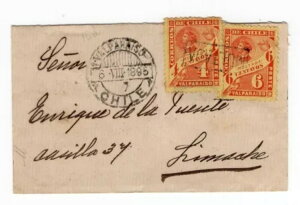 VALPARAISO
6 VII 1895
7
CHILE
DE CHILE
4
CENTAVOS
VALPARAISO
DE CHILE
6 CENTAVOS 6
VALPARAISO
Señor
Enrique de la Puente
casilla 37 Limache